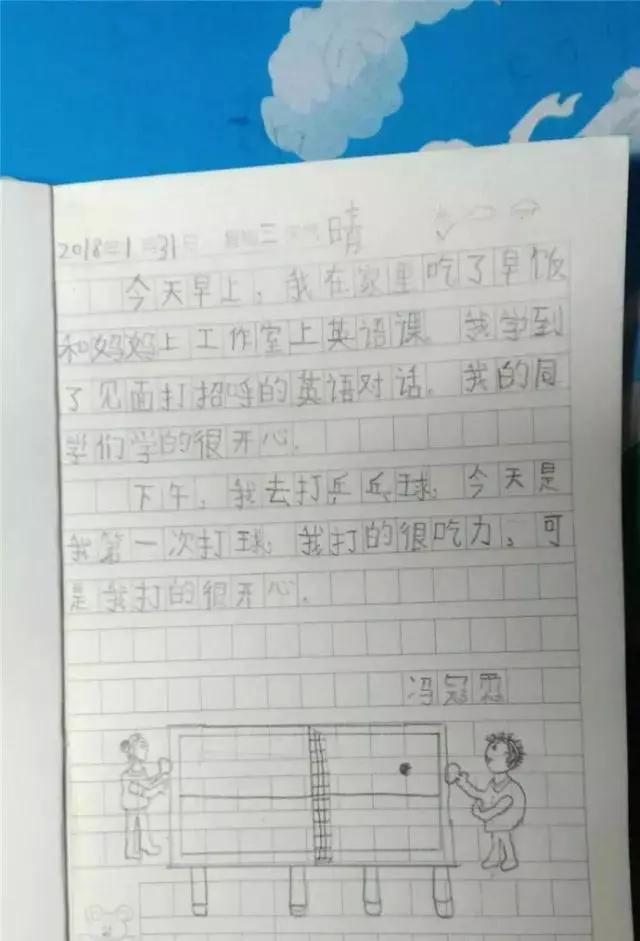 2018年1月31日 星期三 天气 晴
今天早上,我在家里吃了早饭
和妈妈上工作室上英语课。我学到
了见面打招呼的英语对话。我的同
学们学的很开心。
下午,我去打乒乓球。今天是
我第一次打球。我打的很吃力,可
是我打的很开心。
冯冠霖